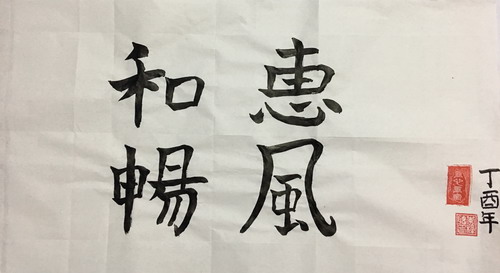 恵風
和暢
丁酉年